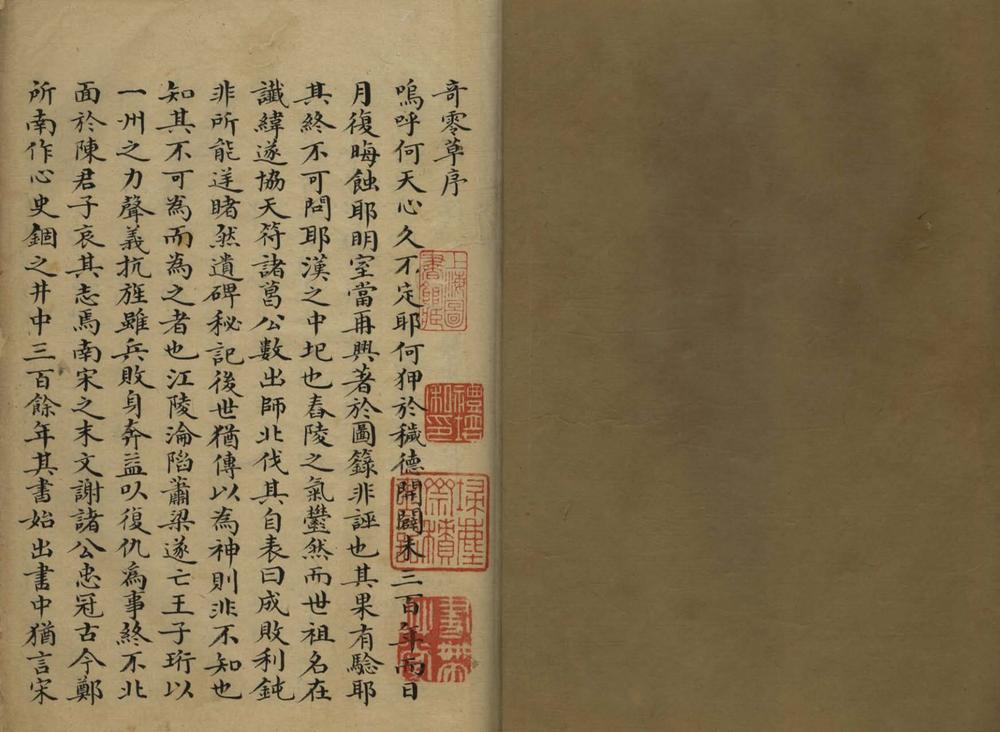 奇零草序
嗚呼何天心久不定耶何狎於穢德開闢未三百年而日
月復晦蝕耶明室當再興著於圖籙非誣也其果有驗耶
其終不可問耶漢之中圮也舂陵之氣鬱然而世祖名在
讖緯遂協天符諸葛公數出師北伐其自表曰成敗利鈍
非所能逆睹然遺碑秘記後世猶傳以為神則非不知也
知其不可為而為之者也江陵淪陷蕭梁遂亡王子珩以
一州之力聲義抗旌雖兵敗身奔益以復仇為事終不北
面於陳君子哀其志焉南宋之末文謝諸公忠冠古今鄭
所南作心史錮之井中三百餘年其書始出書中猶言宋
上海圖書館藏